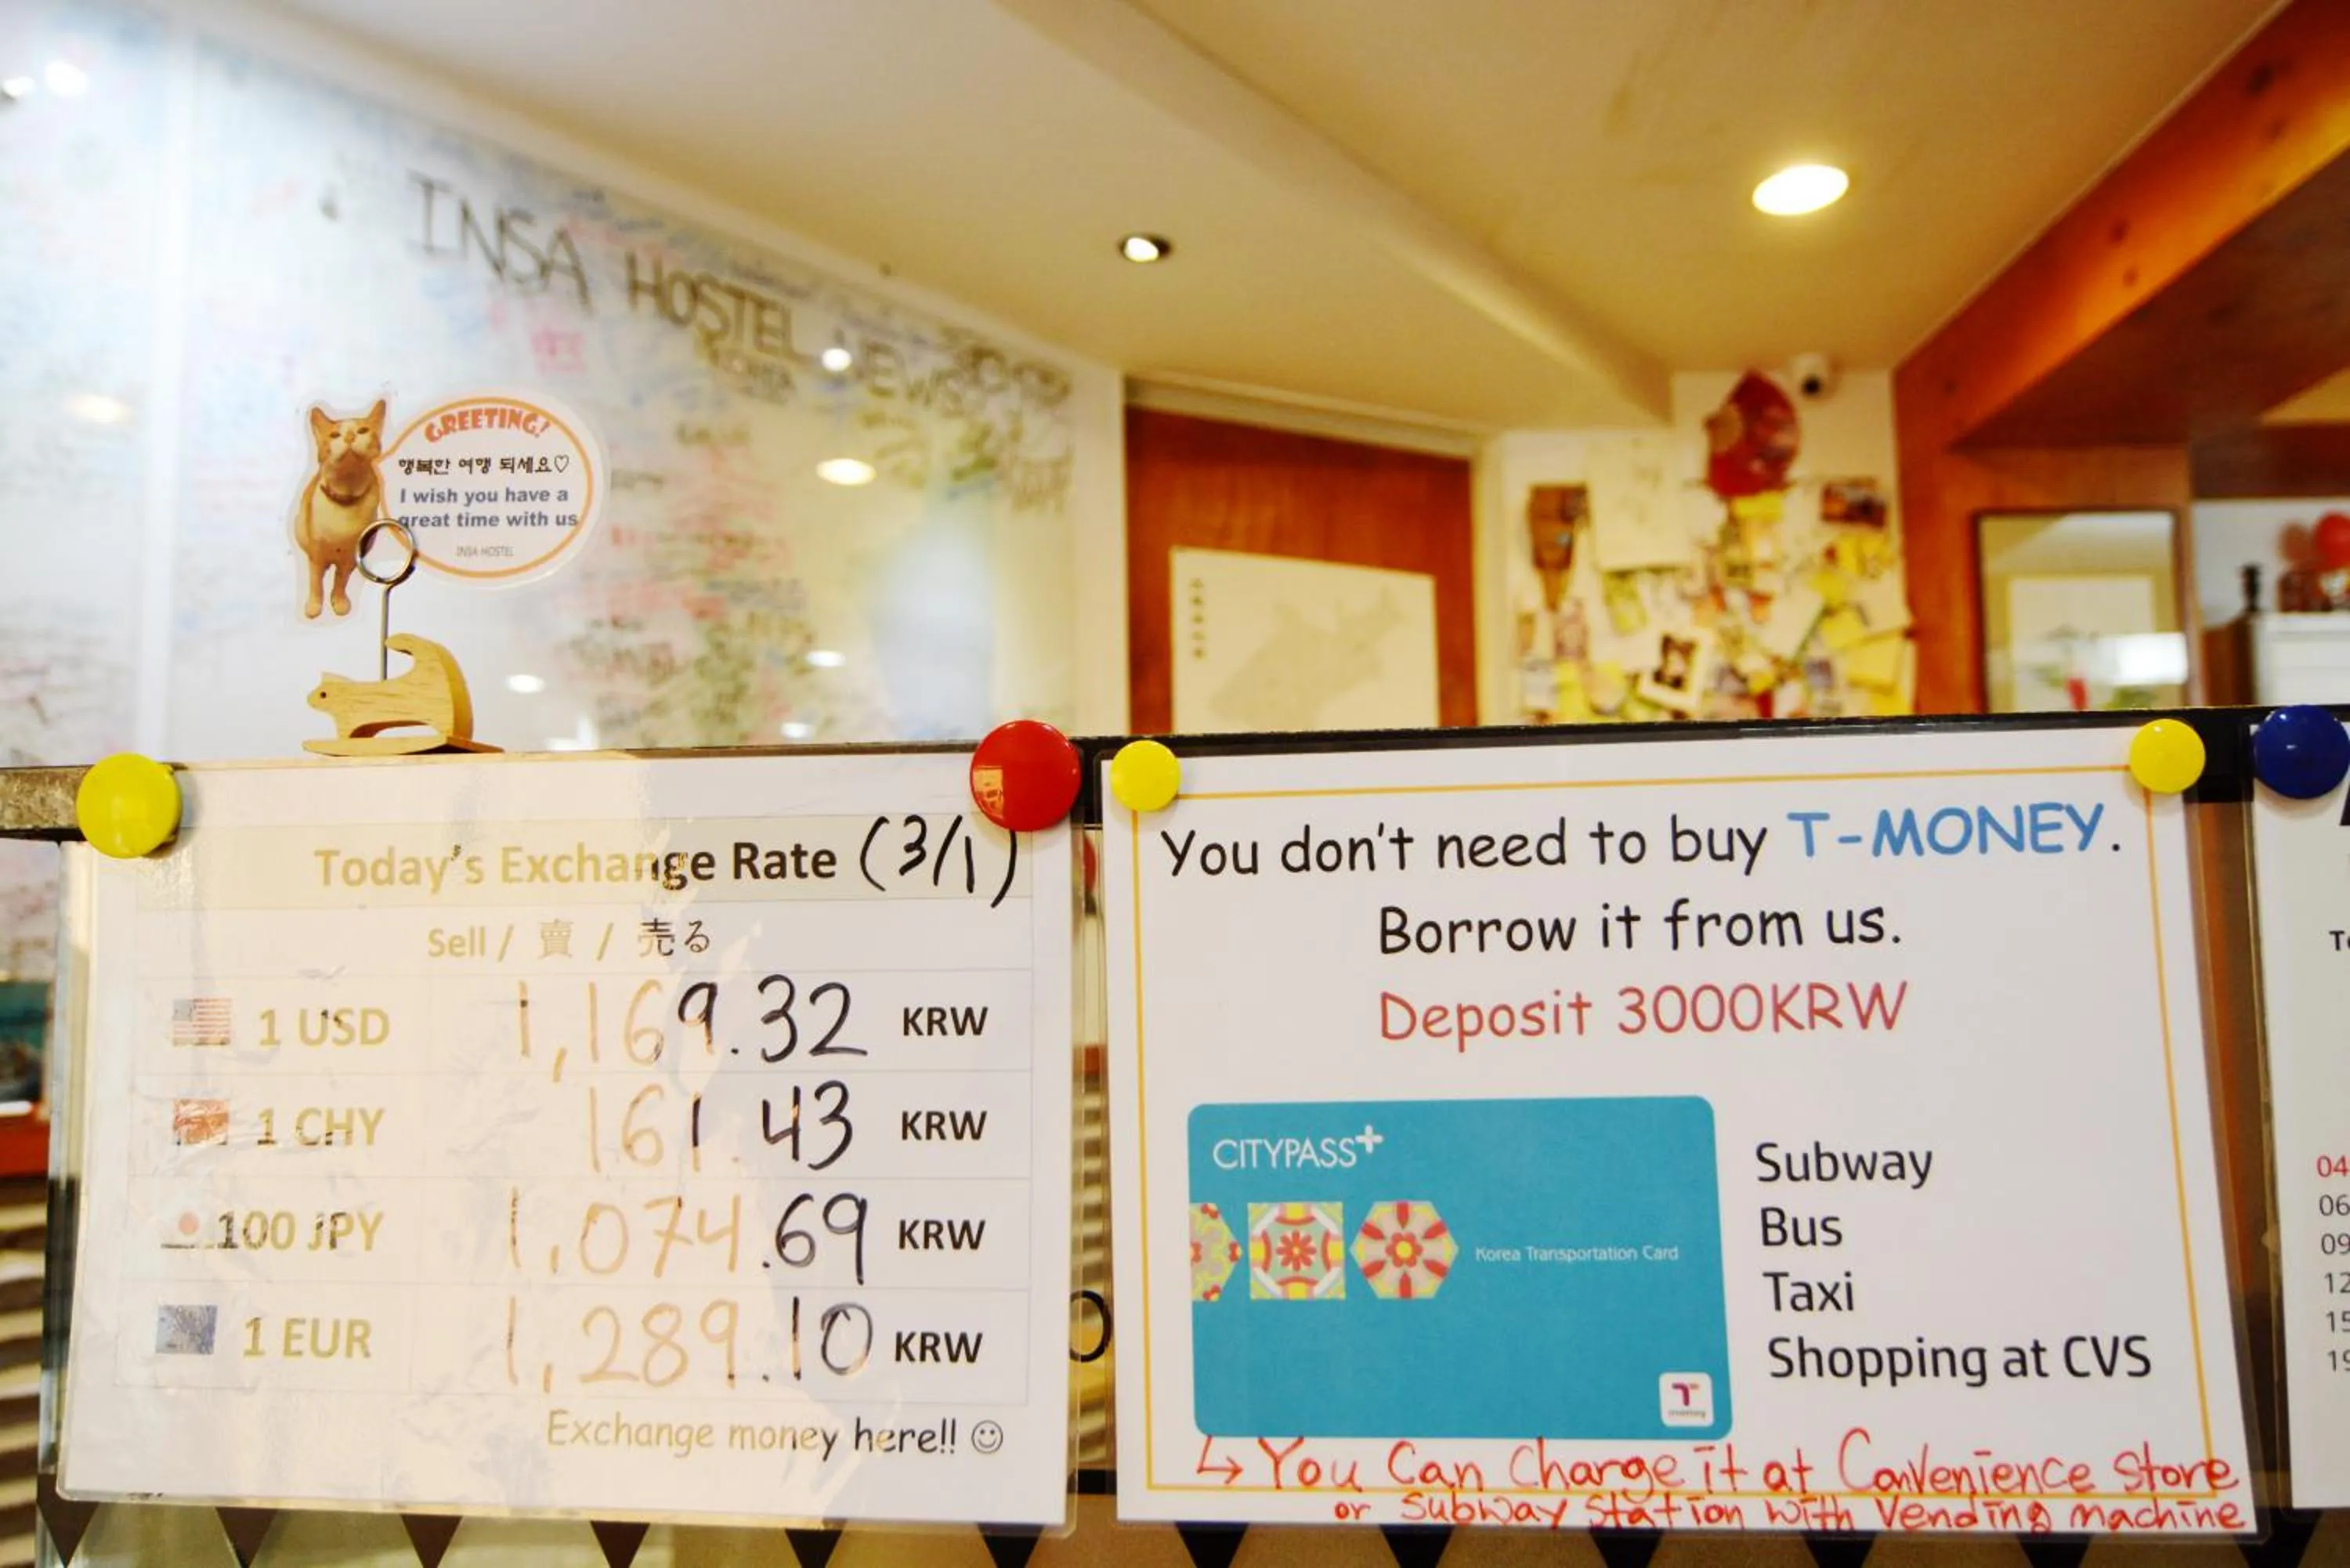 INSA HOSTEL
GREETING!
행복한 여행 되세요♡
I wish you have a
great time with us
INSA HOSTEL
Today's Exchange Rate (3/1)
Sell / 賣 / 売る
1 USD 1,169.32 KRW
1 CHY 161.43 KRW
100 JPY 1,074.69 KRW
1 EUR 1,289.10 KRW
Exchange money here!! ☺
You don't need to buy T-MONEY.
Borrow it from us.
Deposit 3000KRW
CITYPASS+
Korea Transportation Card
T
Subway
Bus
Taxi
Shopping at CVS
↳ You Can Charge it at Convenience Store
or Subway Station with Vending machine
04
06
09
12
15
19